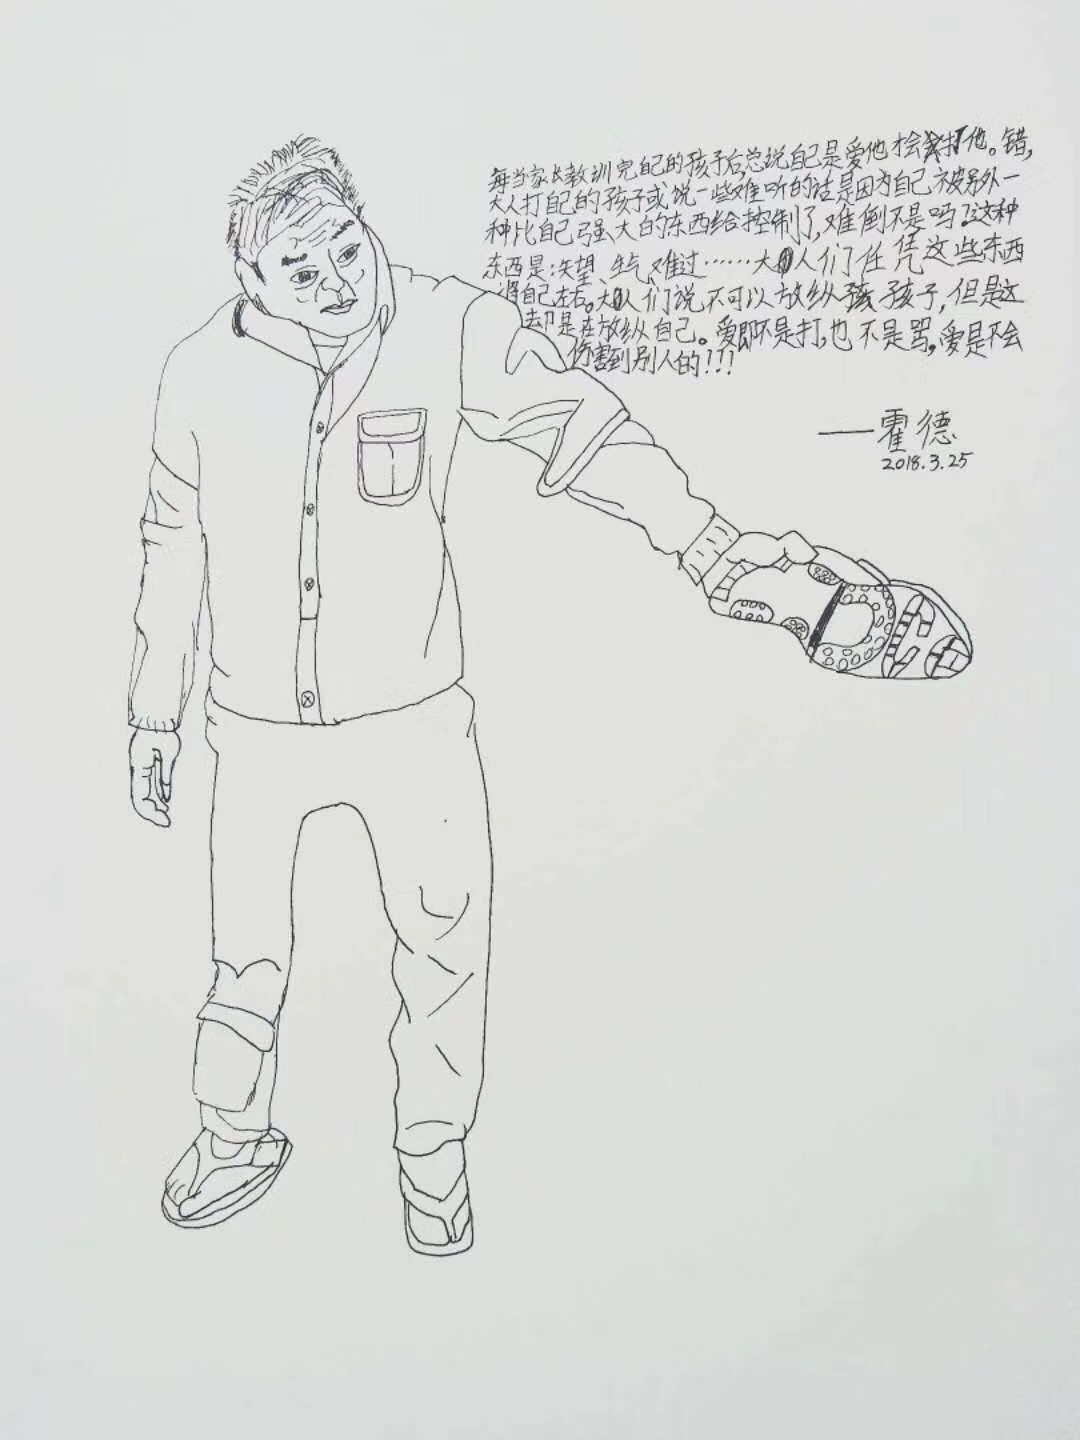 每当家长教训完自己的孩子后,总说自己是爱他才会打他。错,
大人打自己的孩子或说一些难听的话是因为自己被另外一
种比自己强大的东西给控制了,难倒不是吗?这种
东西是:失望、生气、难过……大人们任凭这些东西
将自己左右。大人们说不可以放纵孩子,但是这
却是在放纵自己。爱即不是打,也不是骂,爱是不会
伤害到别人的!!!
——霍德
2018.3.25